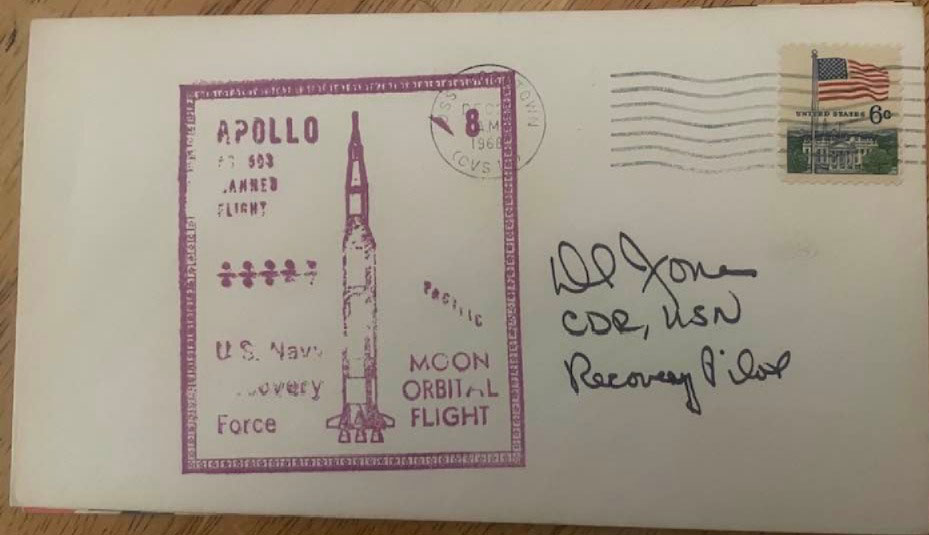 APOLLO
503
FLIGHT
U.S. Navy
Force
PACIFIC
MOON
ORBITAL
FLIGHT
USS YORKTOWN
DEC
8
AM
1968
(CVS 10)
UNITED STATES 6c
Del Jones
CDR, USN
Recovery Pilot